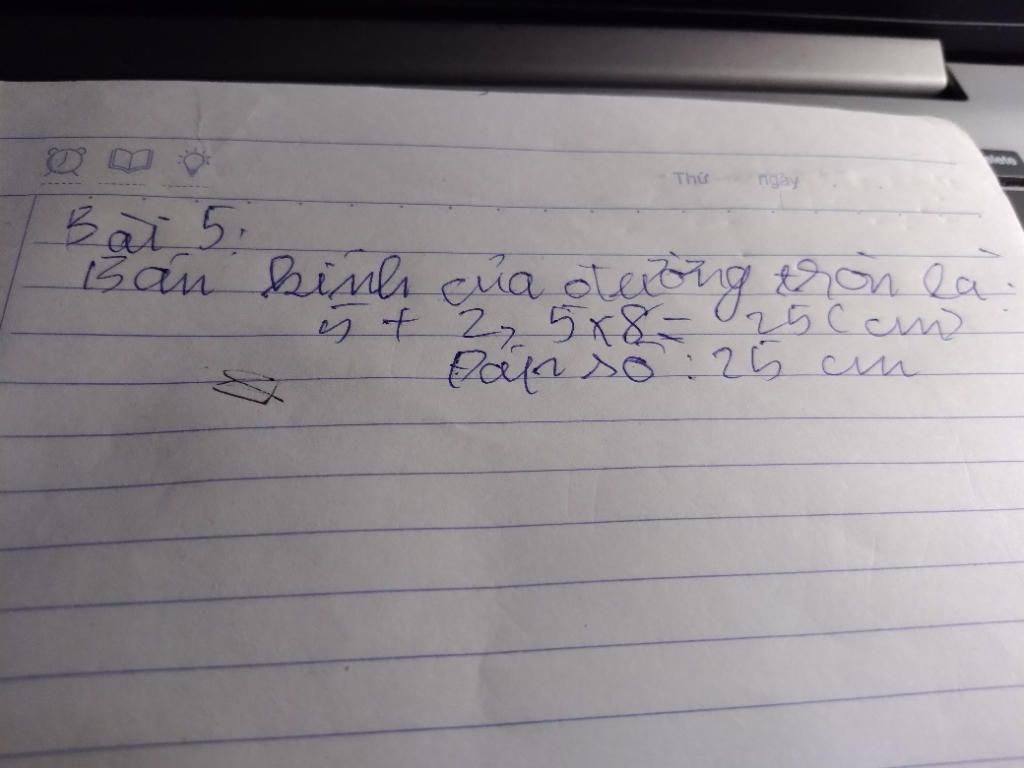 Thứ ngày
Bài 5:
Bán kính của đường tròn là:
5 + 2,5 x 8 = 25 (cm)
Đáp số : 25 cm